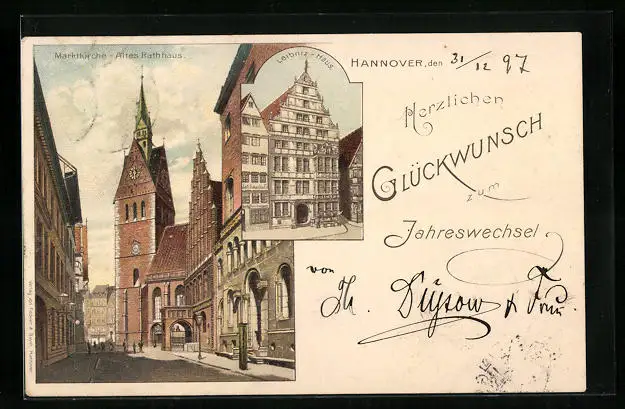 Marktkirche - Altes Rathhaus.
Leibniz-Haus.
HANNOVER, den 31/12 97
Herzlichen
GLÜCKWUNSCH
zum
Jahreswechsel
von
Th. & Frau.